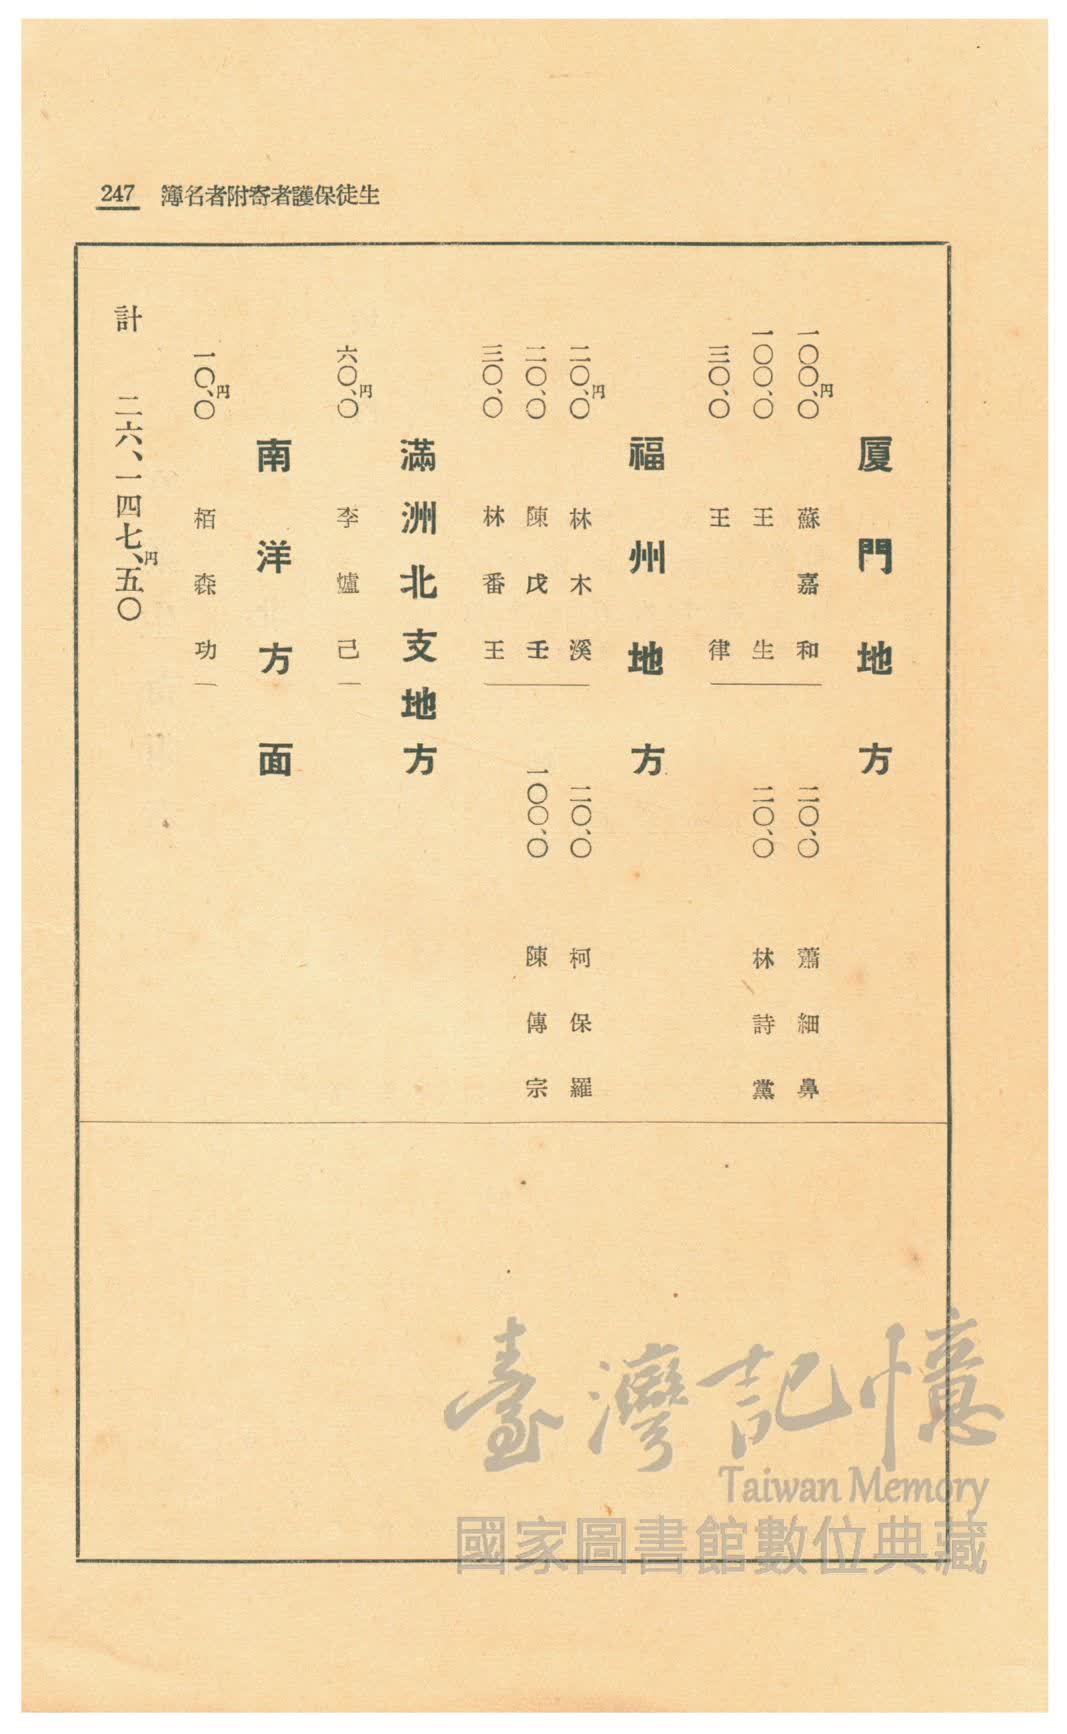 247 生徒保護者寄附者名簿
厦門地方
一〇〇、〇円 蘇嘉和
一〇〇、〇 王生
三〇、〇 王律
二〇、〇 蕭細鼻
二〇、〇 林詩黨
福州地方
二〇、〇円 林木溪
二〇、〇 陳戊壬
三〇、〇 林番王
二〇、〇 柯保羅
一〇〇、〇 陳傳宗
滿洲北支地方
六〇、〇円 李爐己
南洋方面
一〇、〇円 栢森功
計 二六、一四七、円五〇
臺灣記憶
Taiwan Memory
國家圖書館數位典藏